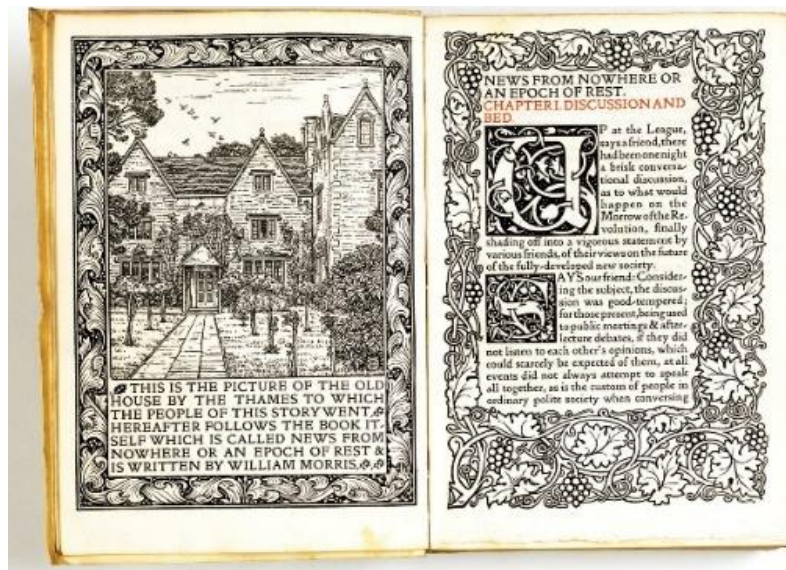 THIS IS THE PICTURE OF THE OLD
HOUSE BY THE THAMES TO WHICH
THE PEOPLE OF THIS STORY WENT
HEREAFTER FOLLOWS THE BOOK IT-
SELF WHICH IS CALLED NEWS FROM
NOWHERE OR AN EPOCH OF REST &
IS WRITTEN BY WILLIAM MORRIS.
NEWS FROM NOWHERE OR
AN EPOCH OF REST.
CHAPTER I. DISCUSSION AND
BED.
UP at the League,
says a friend, there
had been one night
a brisk conversa-
tional discussion,
as to what would
happen on the
Morrow of the Re-
volution, finally
shading off into a vigorous statement by
various friends, of their views on the future
of the fully-developed new society.
SAYS our friend: Consider-
ing the subject, the discus-
sion was good-tempered;
for those present, being used
to public meetings & after-
lecture debates, if they did
not listen to each other's opinions, which
could scarcely be expected of them, at all
events did not always attempt to speak
all together, as is the custom of people in
ordinary polite society when conversing